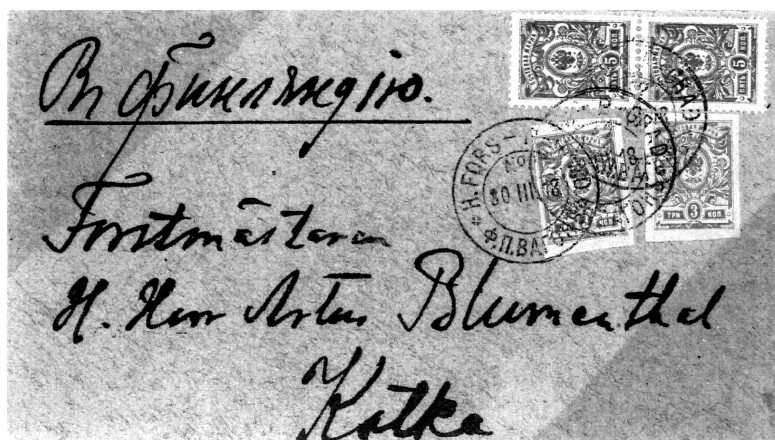 Въ Финляндію.
Forstmästaren
H. Herr Artur Blumenthal
Kotka
5 КОП. 5 КОП.
ПЯТЬ
H. FORS
No
30 III. 18
Ф.П.ВА.
ТРИ 3 КОП.